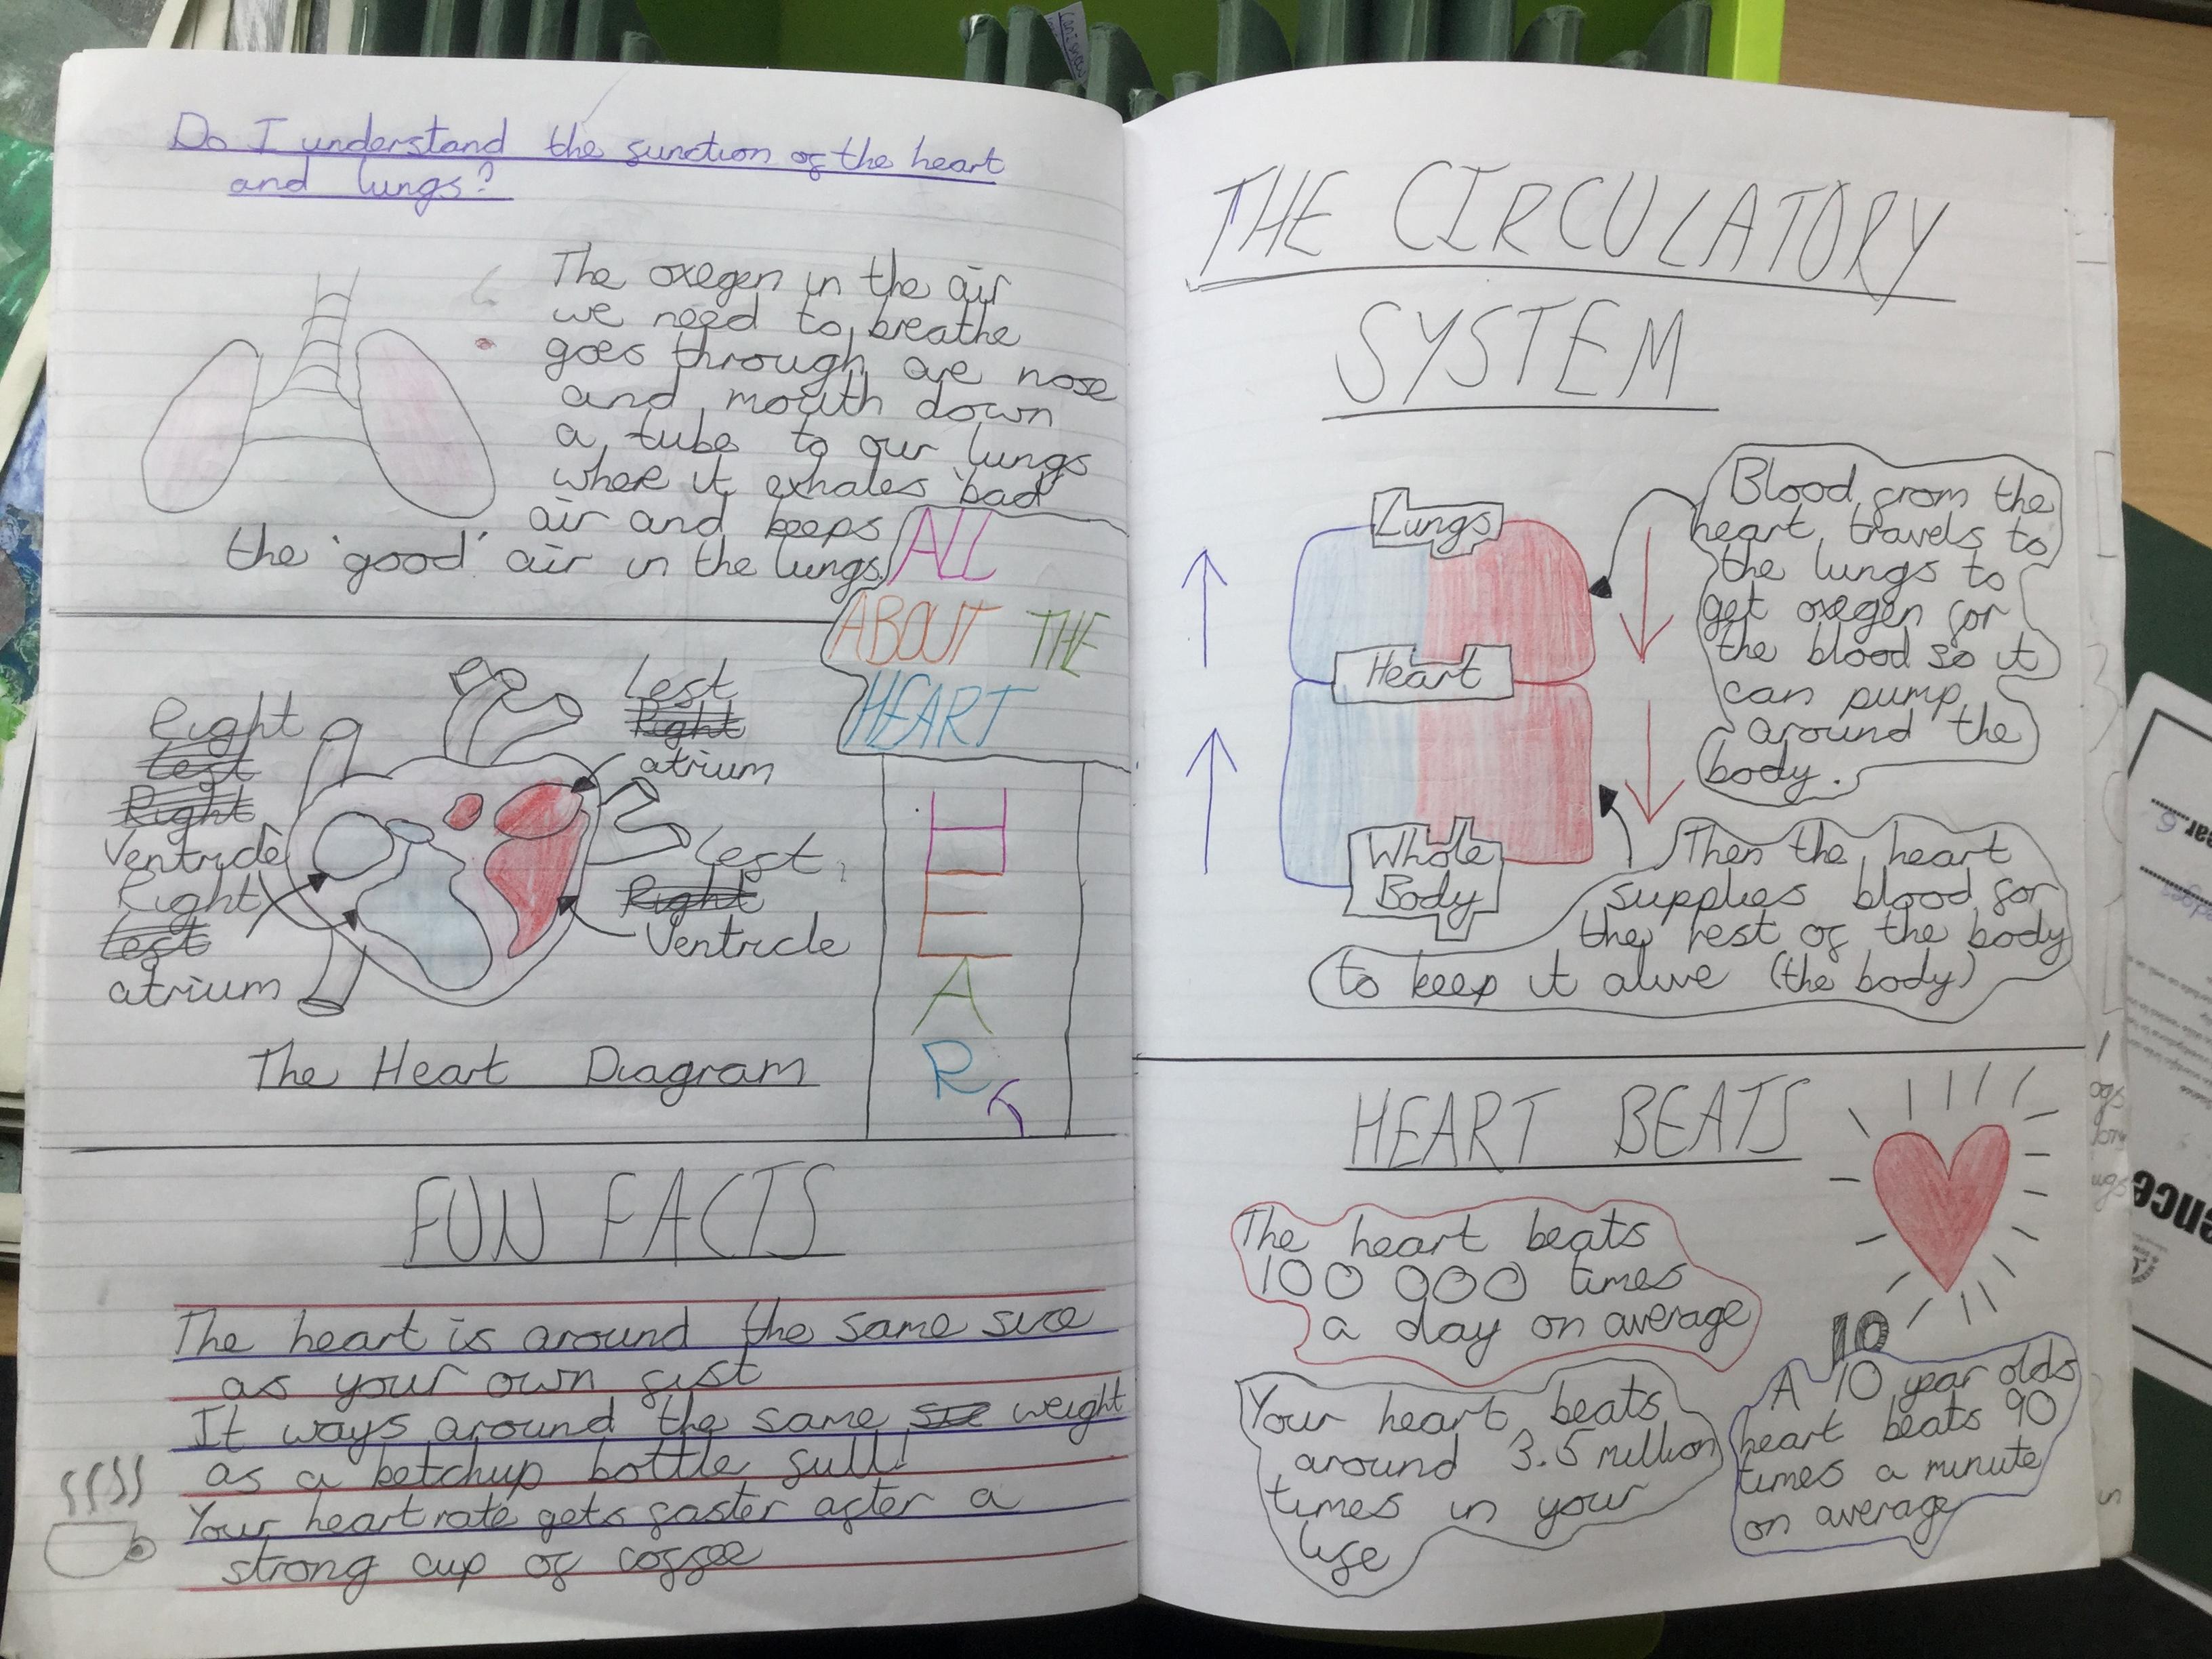 Do I understand the function of the heart
and lungs?
The oxegen in the air
we need to breathe
goes through are nose
and mouth down
a tube to our lungs
where it exhales 'bad'
air and keeps
the 'good' air in the lungs.
ALL
ABOUT THE
HEART
Right
Left
Right
Ventricle
Right
Left
atrium
Left
Right
atrium
Left
Right
Ventricle
The Heart Diagram
HEART
FUN FACTS
The heart is around the same size
as your own fist
It ways around the same size weight
as a ketchup bottle full!
Your heart rate gets faster after a
strong cup of coffee
THE CIRCULATORY
SYSTEM
Lungs
Heart
Whole
Body
Blood from the
heart travels to
the lungs to
get oxegen for
the blood so it
can pump
around the
body.
Then the heart
supplies blood for
the rest of the body
to keep it alive (the body)
HEART BEATS
The heart beats
100 000 times
a day on average
Your heart beats
around 3.5 million
times in your
life
10
A 10 year olds
heart beats 90
times a minute
on average